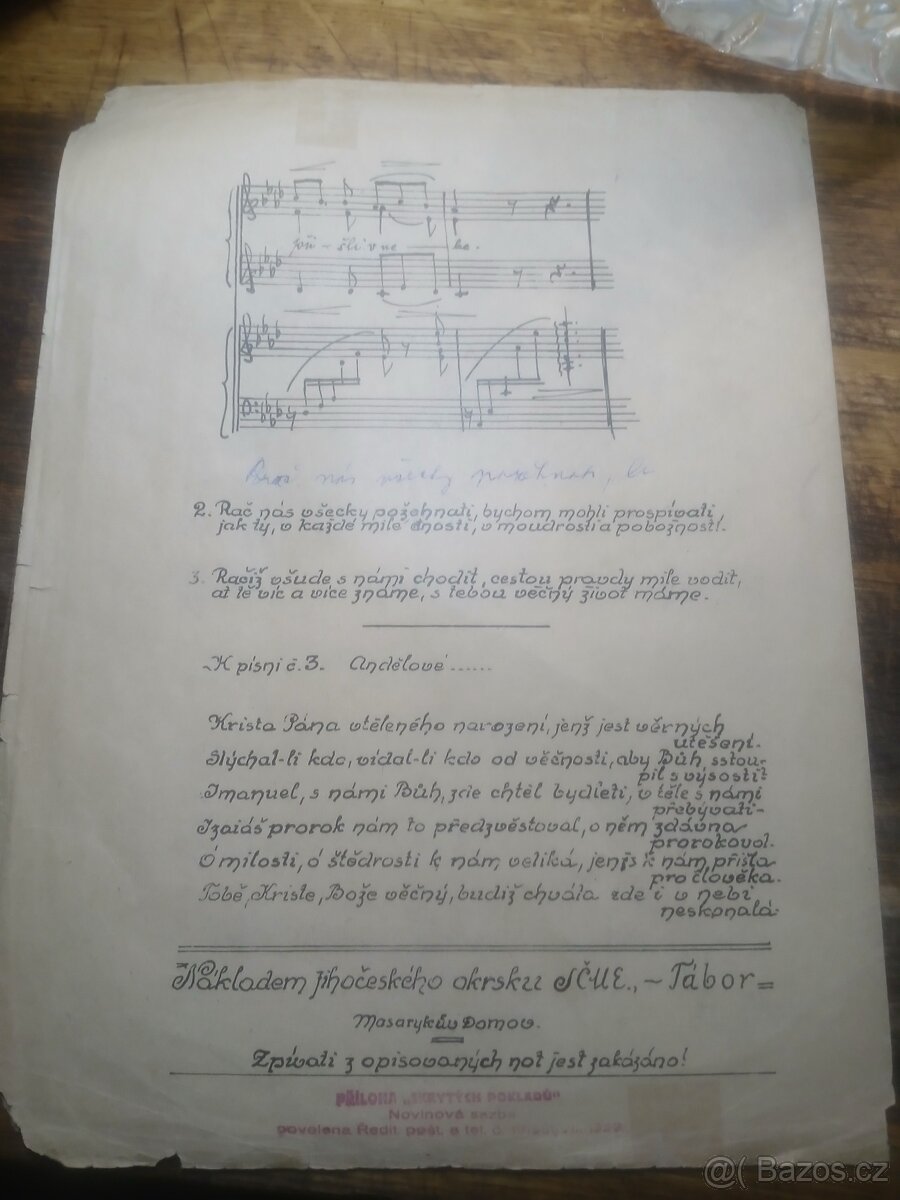 při - šli v ne - be.
nás všecky
2. Rač nás všecky požehnati, bychom mohli prospívati,
jak ty, v každé mile cnosti, v moudrosti a pobožnosti.
3. Račiž všude s námi chodit, cestou pravdy mile vodit,
ať tě víc a více známe, s tebou věčný život máme.
K písni č. 3. Andělové ......
Krista Pána vtěleného narození, jenž jest věrných
utěšení.
Slýchal-li kdo, vídal-li kdo od věčnosti, aby Bůh sstou-
pil s výsosti?
Imanuel, s námi Bůh, zde chtěl bydleti, v těle s námi
přebývati-
Izaiáš prorok nám to předzvěstoval, o něm zdávna
prorokoval.
Ó milosti, ó štědrosti k nám veliká, jenjs k nám přišla
pro člověka.
Tobě, Kriste, Bože věčný, budiž chvála zde i v nebi
neskonalá.
Nákladem jihočeského okrsku SČUE., - Tábor =
Masarykův Domov.
Zpívati z opisovaných not jest zakázáno!
PŘÍLOHA „SKRYTÝCH POKLADŮ"
Novinová sazba
povolena Ředit. pošt. a tel.
@( Bazos.cz